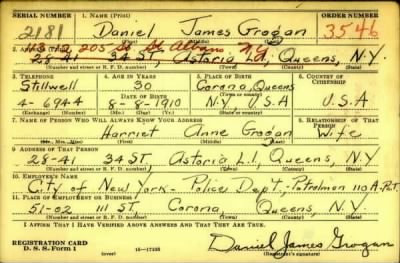 SERIAL NUMBER 1. NAME (Print) ORDER NUMBER
2181 Daniel James Grogan 3546
(First) (Middle) (Last)
205 St. Albans N.Y.
28-41 34 ST, Astoria L.I, Queens, N.Y.
(Number and street or R. F. D. number) (Town) (County) (State)
3. TELEPHONE 4. AGE IN YEARS 5. PLACE OF BIRTH 6. COUNTRY OF CITIZENSHIP
Stillwell 30 Corona, Queens
DATE OF BIRTH (Town or county)
4-6944 8-8-1910 N.Y. U.S.A U.S.A
(Exchange) (Number) (Mo.) (Day) (Yr.) (State or country)
7. NAME OF PERSON WHO WILL ALWAYS KNOW YOUR ADDRESS 8. RELATIONSHIP OF THAT PERSON
Harriet Anne Grogan Wife
(Mr., Mrs., Miss) (First) (Middle) (Last)
9. ADDRESS OF THAT PERSON
28-41 34 ST, Astoria L.I, Queens, N.Y
(Number and street or R. F. D. number) (Town) (County) (State)
10. EMPLOYER'S NAME
City of New York - Police Dept.- Patrolman 110 A-Pct.
11. PLACE OF EMPLOYMENT OR BUSINESS
51-02 111 ST, Corona, Queens, N.Y.
(Number and street or R. F. D. number) (Town) (County) (State)
I AFFIRM THAT I HAVE VERIFIED ABOVE ANSWERS AND THAT THEY ARE TRUE.
REGISTRATION CARD
D. S. S. Form 1 (over) 16-17105 Daniel James Grogan
(Registrant's signature)